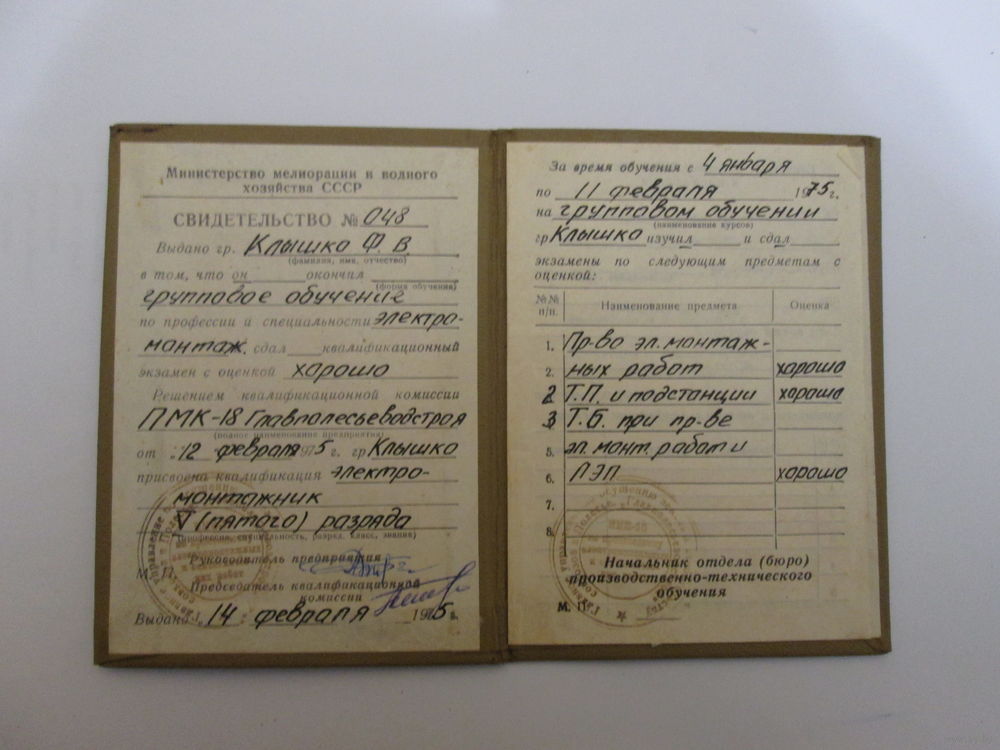 Министерство мелиорации и водного
хозяйства СССР
СВИДЕТЕЛЬСТВО № 048
Выдано гр. Клышко Ф. В.
(фамилия, имя, отчество)
в том, что он окончил
(форма обучения)
групповое обучение
по профессии и специальности электро-
монтаж. сдал квалификационный
экзамен с оценкой хорошо
Решением квалификационной комиссии
ПМК-18 Главполесьеводстроя
(полное наименование предприятия)
от 12 февраля 1975 г. гр Клышко
присвоена квалификация электро-
монтажник
V (пятого) разряда
(профессия, специальность, разряд, класс, звание)
Руководитель предприятия
М. П.
Председатель квалификационной
комиссии
Выдано 14 февраля 1975 г.
За время обучения с 4 января
по 11 февраля 1975 г.
на групповом обучении
(наименование курсов)
гр Клышко изучил и сдал
экзамены по следующим предметам с
оценкой:
№№ п/п. Наименование предмета Оценка
1. Пр-во эл. монтаж-
2. ных работ хорошо
2 Т.П. и подстанции хорошо
3 Т.Б. при пр-ве
5. эл. монт. работ и
6. ЛЭП хорошо
7.
8.
Начальник отдела (бюро)
производственно-технического
обучения
М. П.